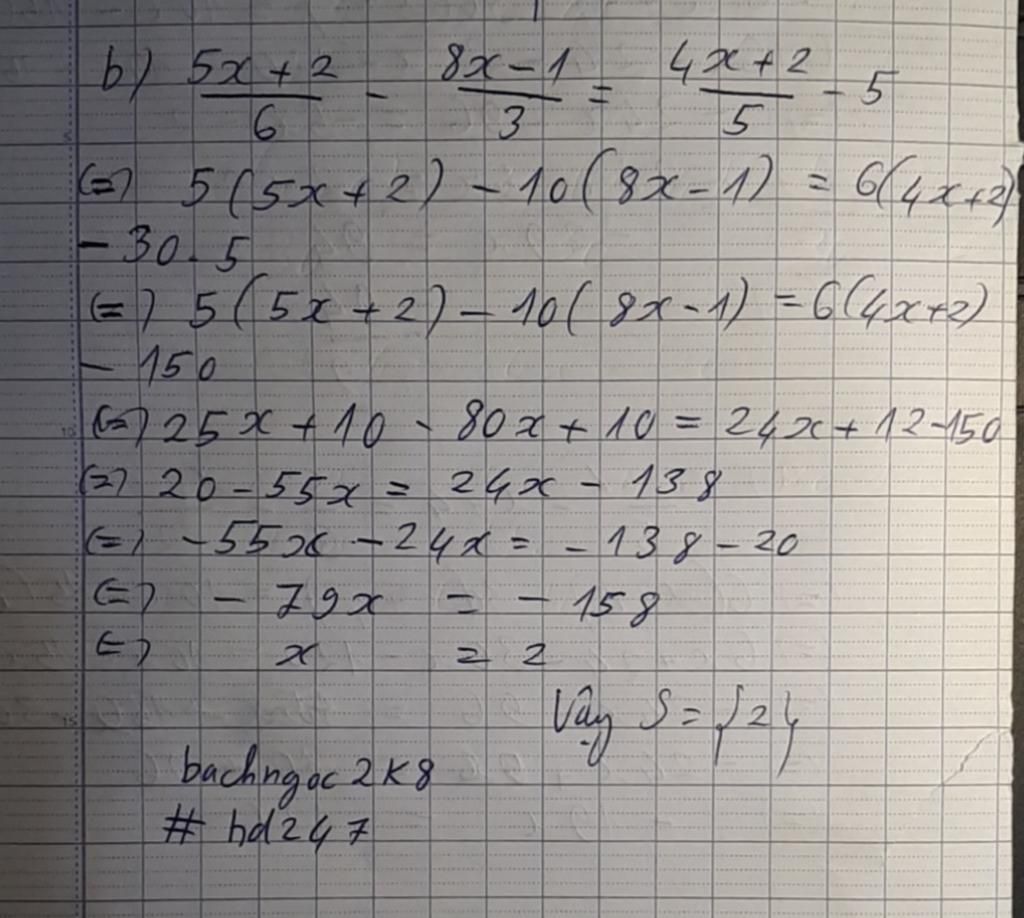 b) (5x+2)/6 - (8x-1)/3 = (4x+2)/5 - 5
(=) 5(5x+2) - 10(8x-1) = 6(4x+2)
- 30.5
(=) 5(5x+2) - 10(8x-1) = 6(4x+2)
- 150
(=) 25x + 10 - 80x + 10 = 24x + 12 - 150
(=) 20 - 55x = 24x - 138
(=) -55x - 24x = -138 - 20
(=) - 79x = - 158
(=) x = 2
Vậy S = {2}
bachngoc2k8
# hd247